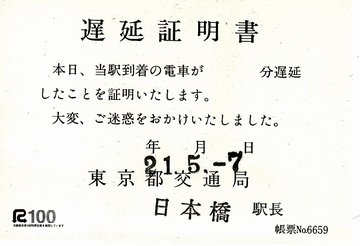 遅延証明書
本日、当駅到着の電車が 分遅延
したことを証明いたします。
大変、ご迷惑をおかけいたしました。
年 月 日
21.5.-7
東京都交通局
日本橋 駅長
R100
帳票No.6659